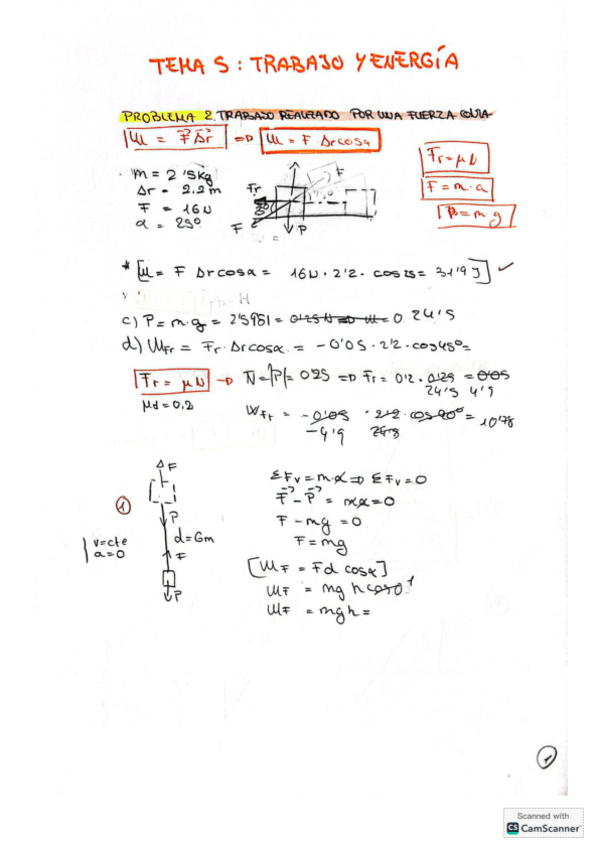 TEMA 5: TRABAJO Y ENERGÍA
PROBLEMA 2. TRABAJO REALIZADO POR UNA FUERZA
W = F Δr => W = F Δr cosα
Fr = μN
F = m·a
P = m·g
m = 2'5kg
Δr = 2.2m
F = 16N
α = 25º
Fr
F
F
P
* [W = F Δr cosα = 16N · 2'2 · cos25 = 31'9 J] ✓
c) P = m·g = 2'5 9'81 = 24'5
d) WFr = Fr · Δr cosα = -0'05 · 2'2 · cos45º =
Fr = μN → N = |P| = 0'25 => Fr = 0'2 · 0'25 = 0'05
24'5 4'9
μd = 0.2
WFr = -0'05 · 2'2 · cos 90º = 10'78
-4'9
ΔF
①
P
v=cte
a=0
d=6m
F
P
ΣFv = m·a => ΣFv = 0
F - P = ma = 0
F - mg = 0
F = mg
[WF = Fd cosα]
WF = mg h cos0 1
WF = mgh =
1
Scanned with
CS CamScanner